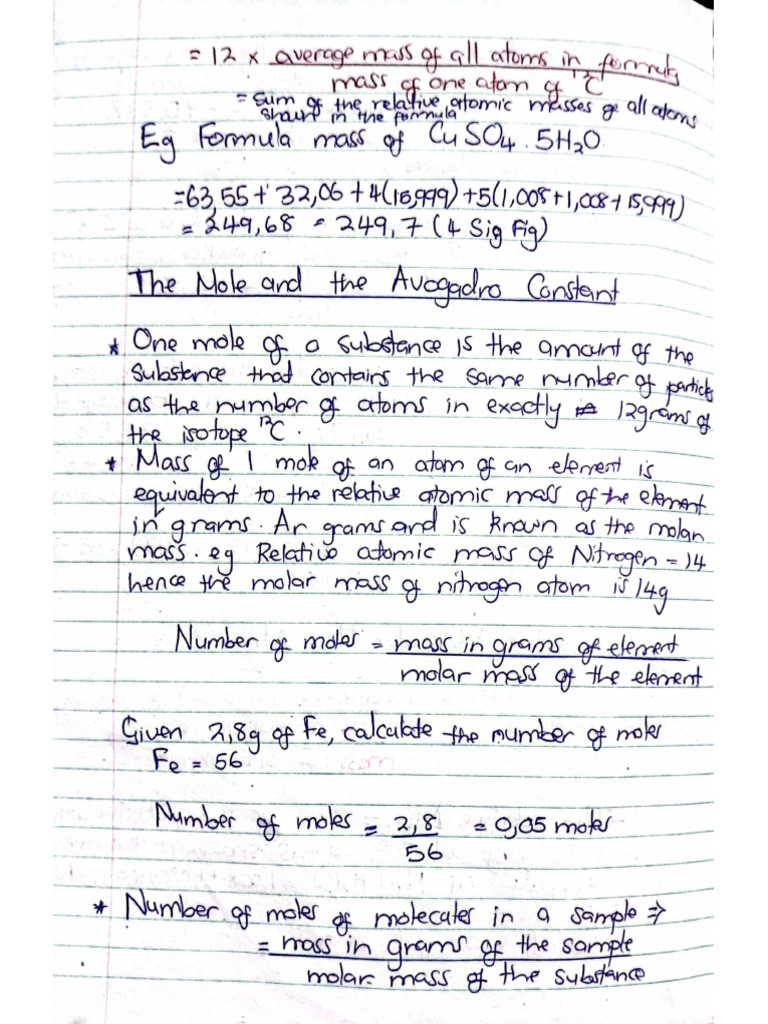 = 12 x average mass of all atoms in formula
mass of one atom of ¹²C
= sum of the relative atomic masses of all atoms
shown in the formula
Eg Formula mass of CuSO₄.5H₂O
=63,55+ 32,06+4(15,999)+5(1,008+1,008+15,999)
= 249,68 = 249,7 (4 Sig Fig)
The Mole and the Avogadro Constant
* One mole of a substance is the amount of the
substance that contains the same number of particles
as the number of atoms in exactly 12grams of
the isotope ¹²C.
* Mass of 1 mole of an atom of an element is
equivalent to the relative atomic mass of the element
in grams. Ar grams and is known as the molar
mass. eg Relative atomic mass of Nitrogen = 14
hence the molar mass of nitrogen atom is 14g
Number of moles = mass in grams of element
molar mass of the element
Given 2,8g of Fe, calculate the number of moles
Fe = 56
Number of moles = 2,8 = 0,05 moles
56
* Number of moles of molecules in a sample ⇒
= mass in grams of the sample
molar mass of the substance